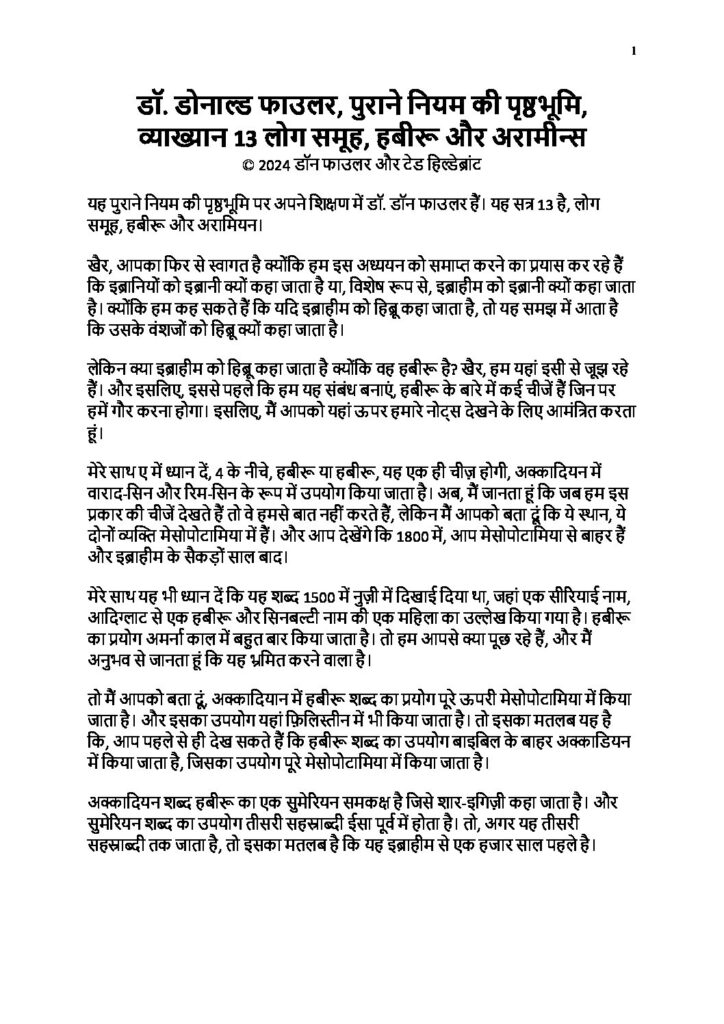 1
डॉ. डोनाल्ड फाउलर, पुराने नियम की पृष्ठभूमि,
व्याख्यान 13 लोग समूह, हबीरू और अरामीन्स
© 2024 डॉन फाउलर और टेड हिल्डेब्रांट
यह पुराने नियम की पृष्ठभूमि पर अपने शिक्षण में डॉ. डॉन फाउलर हैं। यह सत्र 13 है, लोग
समूह, हबीरू और अरामियन।
खैर, आपका फिर से स्वागत है क्योंकि हम इस अध्ययन को समाप्त करने का प्रयास कर रहे हैं
कि इब्रानियों को इब्रानी क्यों कहा जाता है या, विशेष रूप से, इब्राहीम को इब्रानी क्यों कहा जाता
है। क्योंकि हम कह सकते हैं कि यदि इब्राहीम को हिब्रू कहा जाता है, तो यह समझ में आता है
कि उसके वंशजों को हिब्रू क्यों कहा जाता है।
लेकिन क्या इब्राहीम को हिब्रू कहा जाता है क्योंकि वह हबीरू है? खैर, हम यहां इसी से जूझ रहे
हैं। और इसलिए, इससे पहले कि हम यह संबंध बनाएं, हबीरू के बारे में कई चीजें हैं जिन पर
हमें गौर करना होगा। इसलिए, मैं आपको यहां ऊपर हमारे नोट्स देखने के लिए आमंत्रित करता
हूं।
मेरे साथ ए में ध्यान दें, 4 के नीचे, हबीरू या हबीरू, यह एक ही चीज़ होगी, अक्कादियन में
वाराद-सिन और रिम-सिन के रूप में उपयोग किया जाता है। अब, मैं जानता हूं कि जब हम इस
प्रकार की चीजें देखते हैं तो वे हमसे बात नहीं करते हैं, लेकिन मैं आपको बता दूं कि ये स्थान, ये
दोनों व्यक्ति मेसोपोटामिया में हैं। और आप देखेंगे कि 1800 में, आप मेसोपोटामिया से बाहर हैं
और इब्राहीम के सैकड़ों साल बाद।
मेरे साथ यह भी ध्यान दें कि यह शब्द 1500 में नुज़ी में दिखाई दिया था, जहां एक सीरियाई नाम,
आदिग्लाट से एक हबीरू और सिनबल्टी नाम की एक महिला का उल्लेख किया गया है। हबीरू
का प्रयोग अमर्ना काल में बहुत बार किया जाता है। तो हम आपसे क्या पूछ रहे हैं, और मैं
अनुभव से जानता हूं कि यह भ्रमित करने वाला है।
तो मैं आपको बता दूं, अक्कादियान में हबीरू शब्द का प्रयोग पूरे ऊपरी मेसोपोटामिया में किया
जाता है। और इसका उपयोग यहां फ़िलिस्तीन में भी किया जाता है। तो इसका मतलब यह है
कि, आप पहले से ही देख सकते हैं कि हबीरू शब्द का उपयोग बाइबिल के बाहर अक्काडियन
में किया जाता है, जिसका उपयोग पूरे मेसोपोटामिया में किया जाता है।
अक्कादियन शब्द हबीरू का एक सुमेरियन समकक्ष है जिसे शार-इगिज़ी कहा जाता है। और
सुमेरियन शब्द का उपयोग तीसरी सहस्राब्दी ईसा पूर्व में होता है। तो, अगर यह तीसरी
सहस्राब्दी तक जाता है, तो इसका मतलब है कि यह इब्राहीम से एक हजार साल पहले है।